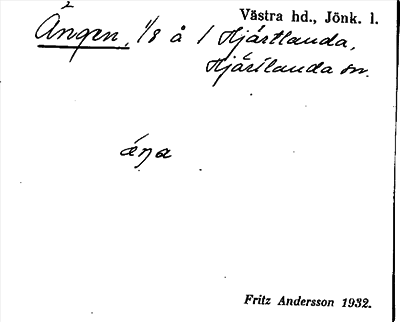 Västra hd., Jönk. l.
Ängen, 1/8 å 1 Hjärtlanda,
Hjärtlanda sn.
äŋa
Fritz Andersson 1932.